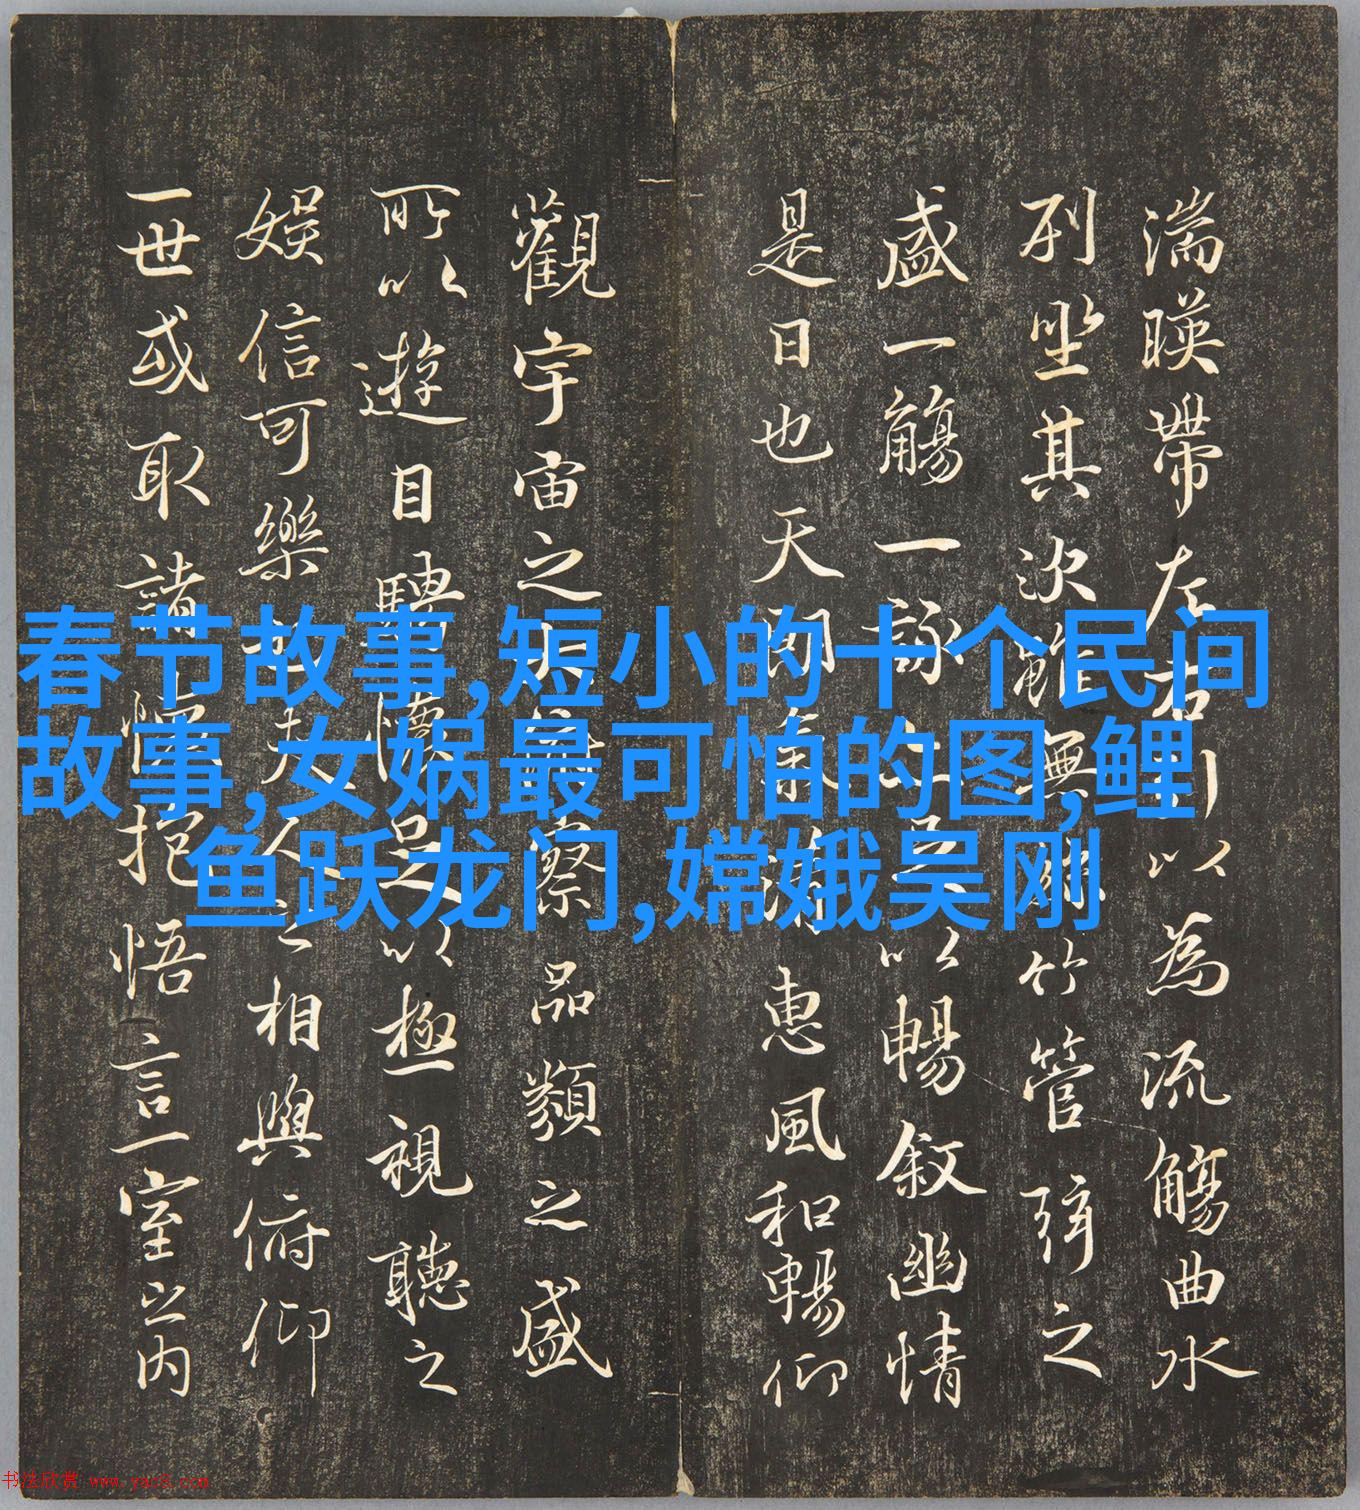 春节故事,短小的十个民间
故事,女娲最可怕的图,鲤
鱼跃龙门,嫦娥吴刚
湍暎帶左右引以為流觴曲水
列坐其次雖無絲竹管弦之
盛一觴一詠亦足以暢敘幽情
是日也天朗氣清惠風和暢仰
觀宇宙之大俯察品類之盛
所以遊目騁懷足以極視聽之
娛信可樂也夫人之相與俯仰
一世或取諸懷抱悟言一室之内
书法欣赏 www.yac8.com